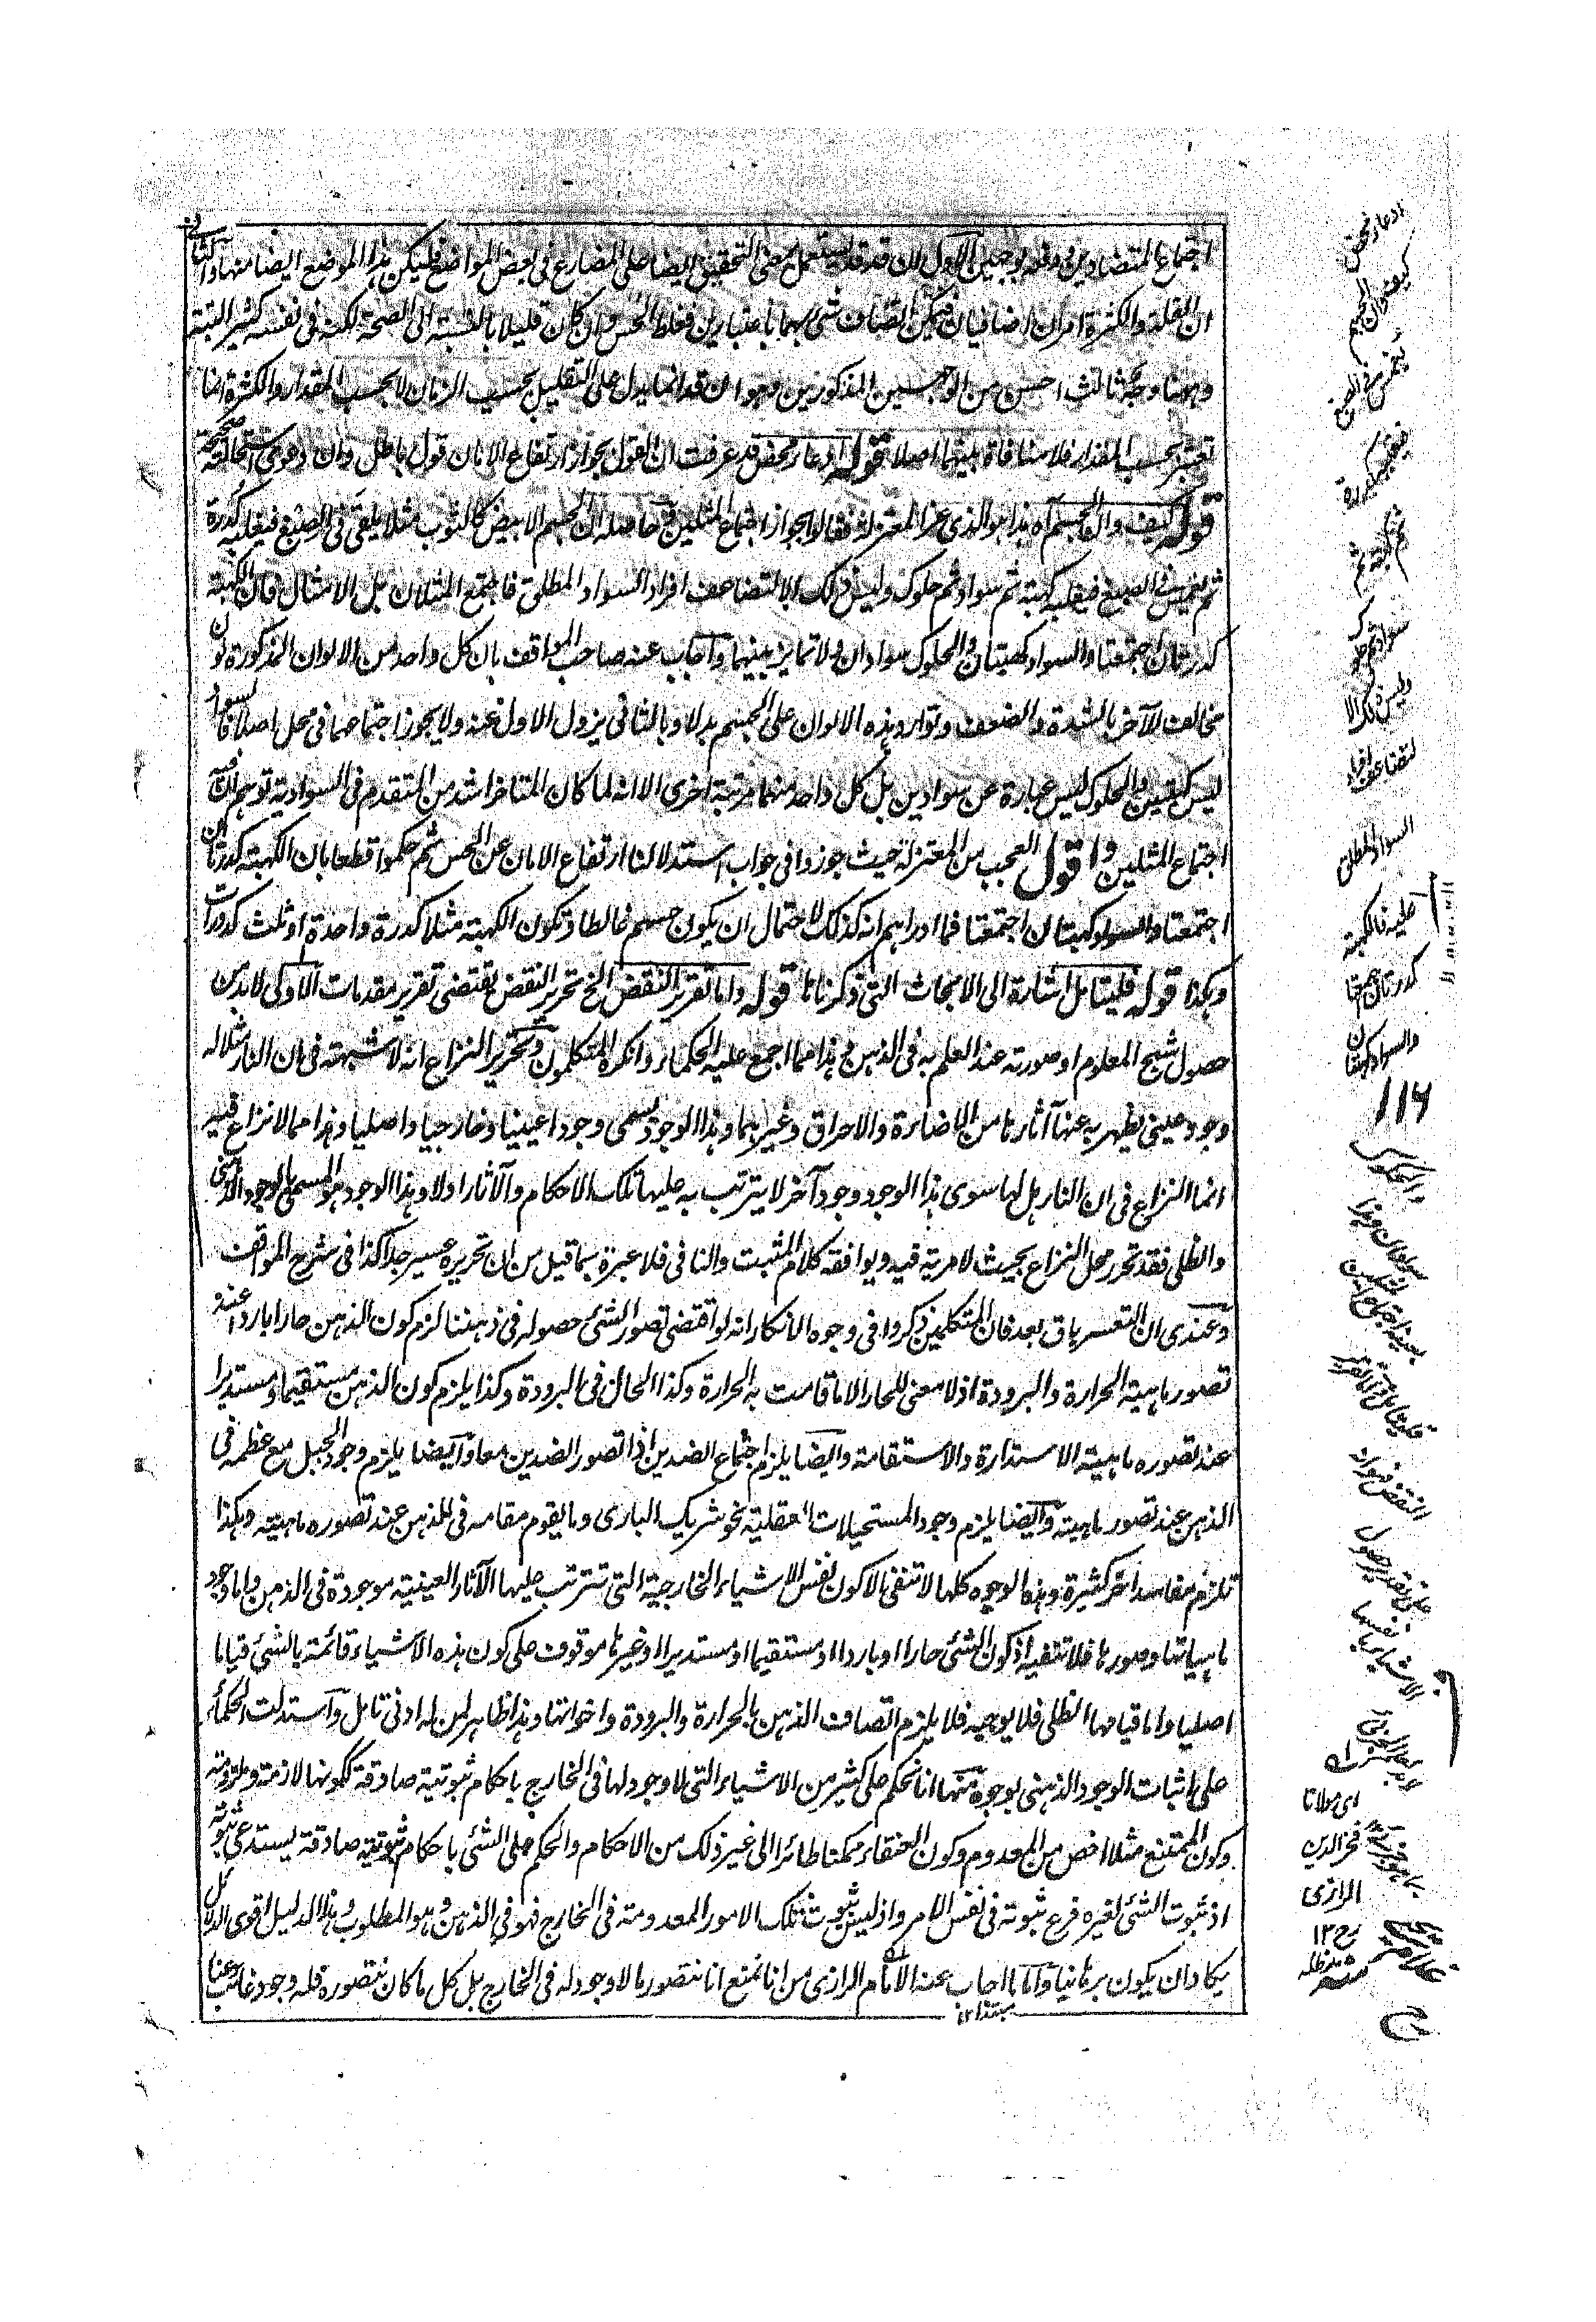 اجتماع المتضادين ودفعه بوجهين الاول ان قد قد تستعمل بمعنى التحقيق ايضا على المضارع في بعض المواضع فليكن هذا الموضع ايضا منها والثاني
ان القلة والكثرة امران اضافيان فيمكن اتصاف شئ بهما باعتبارين فغلط الحس وان كان قليلا بالنسبة الى الصحة لكنه في نفسه كثير البتة
وههنا وجه ثالث احسن من الوجهين المذكورين وهو ان قد انما يدل على التقليل بحسب الزمان لا بحسب المقدار والكثرة انما
تعتبر بحسب المقدار فلا منافاة بينهما اصلا قوله ادعاء محض قد عرفت ان القول بجواز ارتفاع الامان قول باطل وان دعوى استحالته صحيحة
قوله كيف وان الجسم اه هذا هو الذي غر المعتزلة فقالوا بجواز اجتماع المثلين حاصله ان الجسم الابيض كالثوب مثلا يلقى في الصبغ فيغلبه كدرة
ثم يغمس في الصبغ فيغلبه كهبة ثم سواد ثم حلوك وليس ذلك الا لتضاعف افراد السواد المطلق فاجتمع المثلان بل الامثال فان الكهبة
كدرتان اجتمعتا والسواد كهبتان والحلوك سوادان ولا تمايز بينهما واجاب عنه صاحب المواقف بان كل واحد من الالوان المذكورة لون
مخالف الآخر بالشدة والضعف وتوارد هذه الالوان على الجسم بدلا وبالثاني يزول الاول عنه ولا يجوز اجتماعهما في محل اصلا فالسواد
ليس كهبتين والحلوك ليس عبارة عن سوادين بل كل واحد منهما مرتبة اخرى الا انه لما كان المتاخر اشد من المتقدم في السوادية توهم ان فيه
اجتماع المثلين واقول العجب من المعتزلة حيث جوزوا في جواب استدلالنا ارتفاع الامان عن الحس ثم حكموا قطعا بان الكهبة كدرتان
اجتمعتا والسواد كهبتان اجتمعتا فما ادراهم انه كذلك لاحتمال ان يكون حسهم غالطا وتكون الكهبة مثلا كدرة واحدة او ثلث كدورات
وهكذا قوله فليتامل اشارة الى الابحاث التي ذكرناها قوله واما تقرير النقض الخ تحرير النقض يقتضي تقرير مقدمات الاولى لا بد من
حصول شبح المعلوم او صورته عند العلم به في الذهن هذا مما اجمع عليه الحكماء وانكره المتكلمون وتحرير النزاع انه لا شبهة في ان النار مثلا له
وجود عيني يظهر به عنها آثارها من الاضاءة والاحراق وغيرهما وهذا الوجود يسمى وجودا عينيا وخارجيا واصليا وهذا مما لا نزاع فيه
انما النزاع في ان النار هل لها سوى هذا الوجود وجود آخر لا يترتب به عليها تلك الاحكام والآثار اولا وهذا الوجود هو المسمى بالوجود الذهني
والظلي فقد تحرر محل النزاع بحيث لا مرية فيه ويوافقه كلام المثبت والنافي فلا عبرة بما قيل من ان تحريره عسير جدا كذا في شرح المواقف
وعندي ان التعسر باق بعد فان المتكلمين ذكروا في وجوه الانكار انه لو اقتضى تصور الشئ حصوله في ذهننا لزم كون الذهن حارا باردا عند
تصور ماهية الحرارة والبرودة اذ لا معنى للحار الا ما قامت به الحرارة وكذا الحال في البرودة وكذا يلزم كون الذهن مستقيما ومستديرا
عند تصوره ماهية الاستدارة والاستقامة وايضا يلزم اجتماع الضدين اذا تصور الضدين معا وايضا يلزم وجود الجبل مع عظمه في
الذهن عند تصور ماهيته وايضا يلزم وجود المستحيلات العقلية نحو شريك الباري وما يقوم مقامه في للذهن عند تصوره ماهيته وهكذا
تلزم مفاسد اخر كثيرة وهذه الوجوه كلها لا تنفي الا كون نفس الاشياء الخارجية التي تترتب عليها الآثار العينية موجودة في الذهن واما وجود
ماهياتها وصورها فلا تنفيه اذ كون الشئ حارا او باردا او مستقيما او مستديرا او غيرها موقوف على كون هذه الاشياء قائمة بالشئ قياما
اصليا واما قيامها الظلي فلا يوجبه فلا يلزم اتصاف الذهن بالحرارة والبرودة واخواتها وهذا ظاهر لمن له ادنى تامل واستدلت الحكماء
على اثبات الوجود الذهني بوجوه منها انا نحكم على كثير من الاشياء التي لا وجود لها في الخارج باحكام ثبوتية صادقة ككونها لازمة وملزومة
وكون الممتنع مثلا اخص من المعدوم وكون العنقاء ممكنا طائرا الى غير ذلك من الاحكام والحكم على الشئ باحكام ثبوتية صادقة يستدعي ثبوته
اذ ثبوت الشئ لغيره فرع ثبوته في نفس الامر واذ ليس ثبوت تلك الامور المعدومة في الخارج فهو في الذهن وهو المطلوب وهذا الدليل اقوى الدلائل
يكاد ان يكون برهانيا واما ما اجاب عنه الامام الرازي من انا نمنع انا نتصور ما لا وجود له في الخارج بل كل ما كان نتصوره فله وجود غائب عنا
مبتدا ١٢
ادعاء محض
كيف وان الجسم
يغمس في الصبغ
فيغلبه كدرة
ثم كهبة ثم
سواد ثم حلوك
وليس ذلك الا
لتضاعف افراد
السواد المطلق
عليه فالكهبة
كدرتان اجتمعتا
والسواد كهبتان
١١٦
والحلوك
سوادان وهذا
فليتامل واما تقرير
النقض فهو انه
على تقدير حصول
الاشياء بانفسها
اى مولانا
فخر الدين
الرازى
رح ١٢
مد ظله